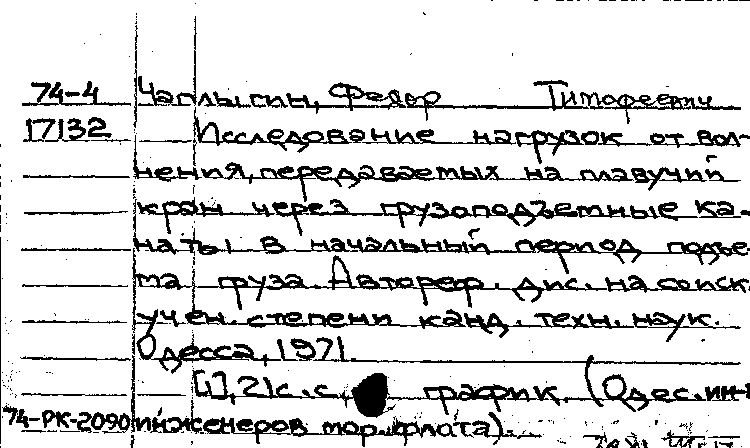 74-4 Чаплыгин, Федор Тимофеевич
17132 Исследование нагрузок от вол-
нения, передаваемых на плавучий
кран через грузоподъемные ка-
наты в начальный период подъе-
ма груза. Автореф. дис. на соиск.
учен. степени канд. техн. наук.
Одесса, 1971.
[1], 21 с. с., график. (Одес. ин-т
74-РК-2090 инженеров мор. флота).